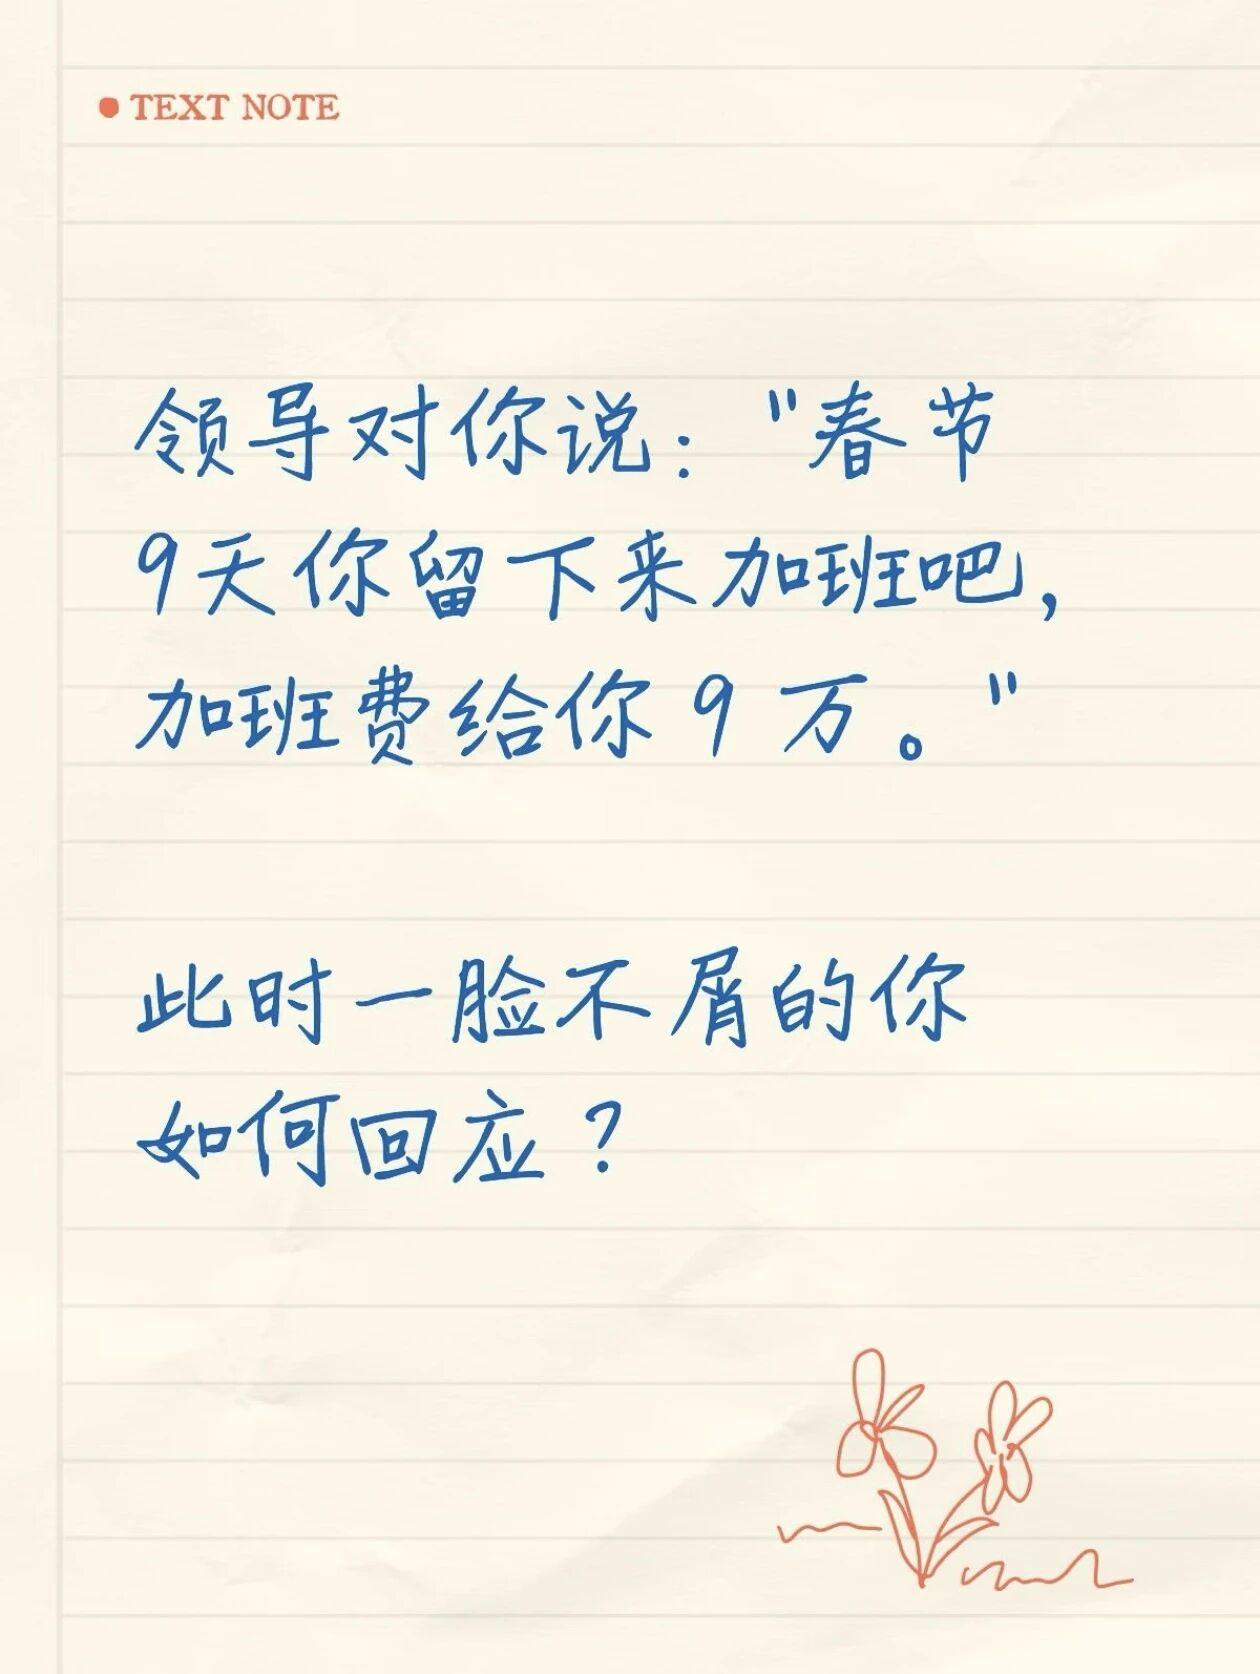 TEXT NOTE
领导对你说："春节
9天你留下来加班吧,
加班费给你9万。"
此时一脸不屑的你
如何回应?